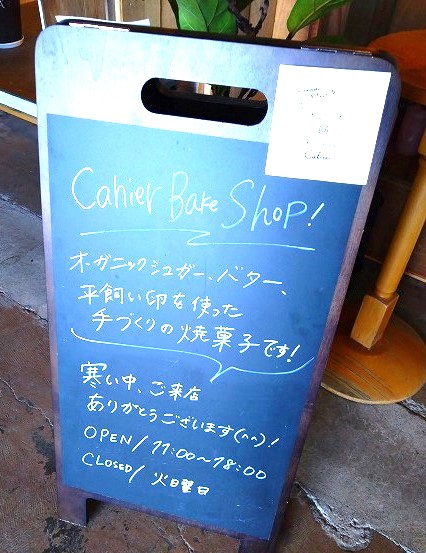 Cahier Bake Shop!
オーガニックシュガー、バター、
平飼い卵を使った
手づくりの焼菓子です!
寒い中、ご来店
ありがとうございます(^^)!
OPEN/11:00〜18:00
CLOSED/火曜日